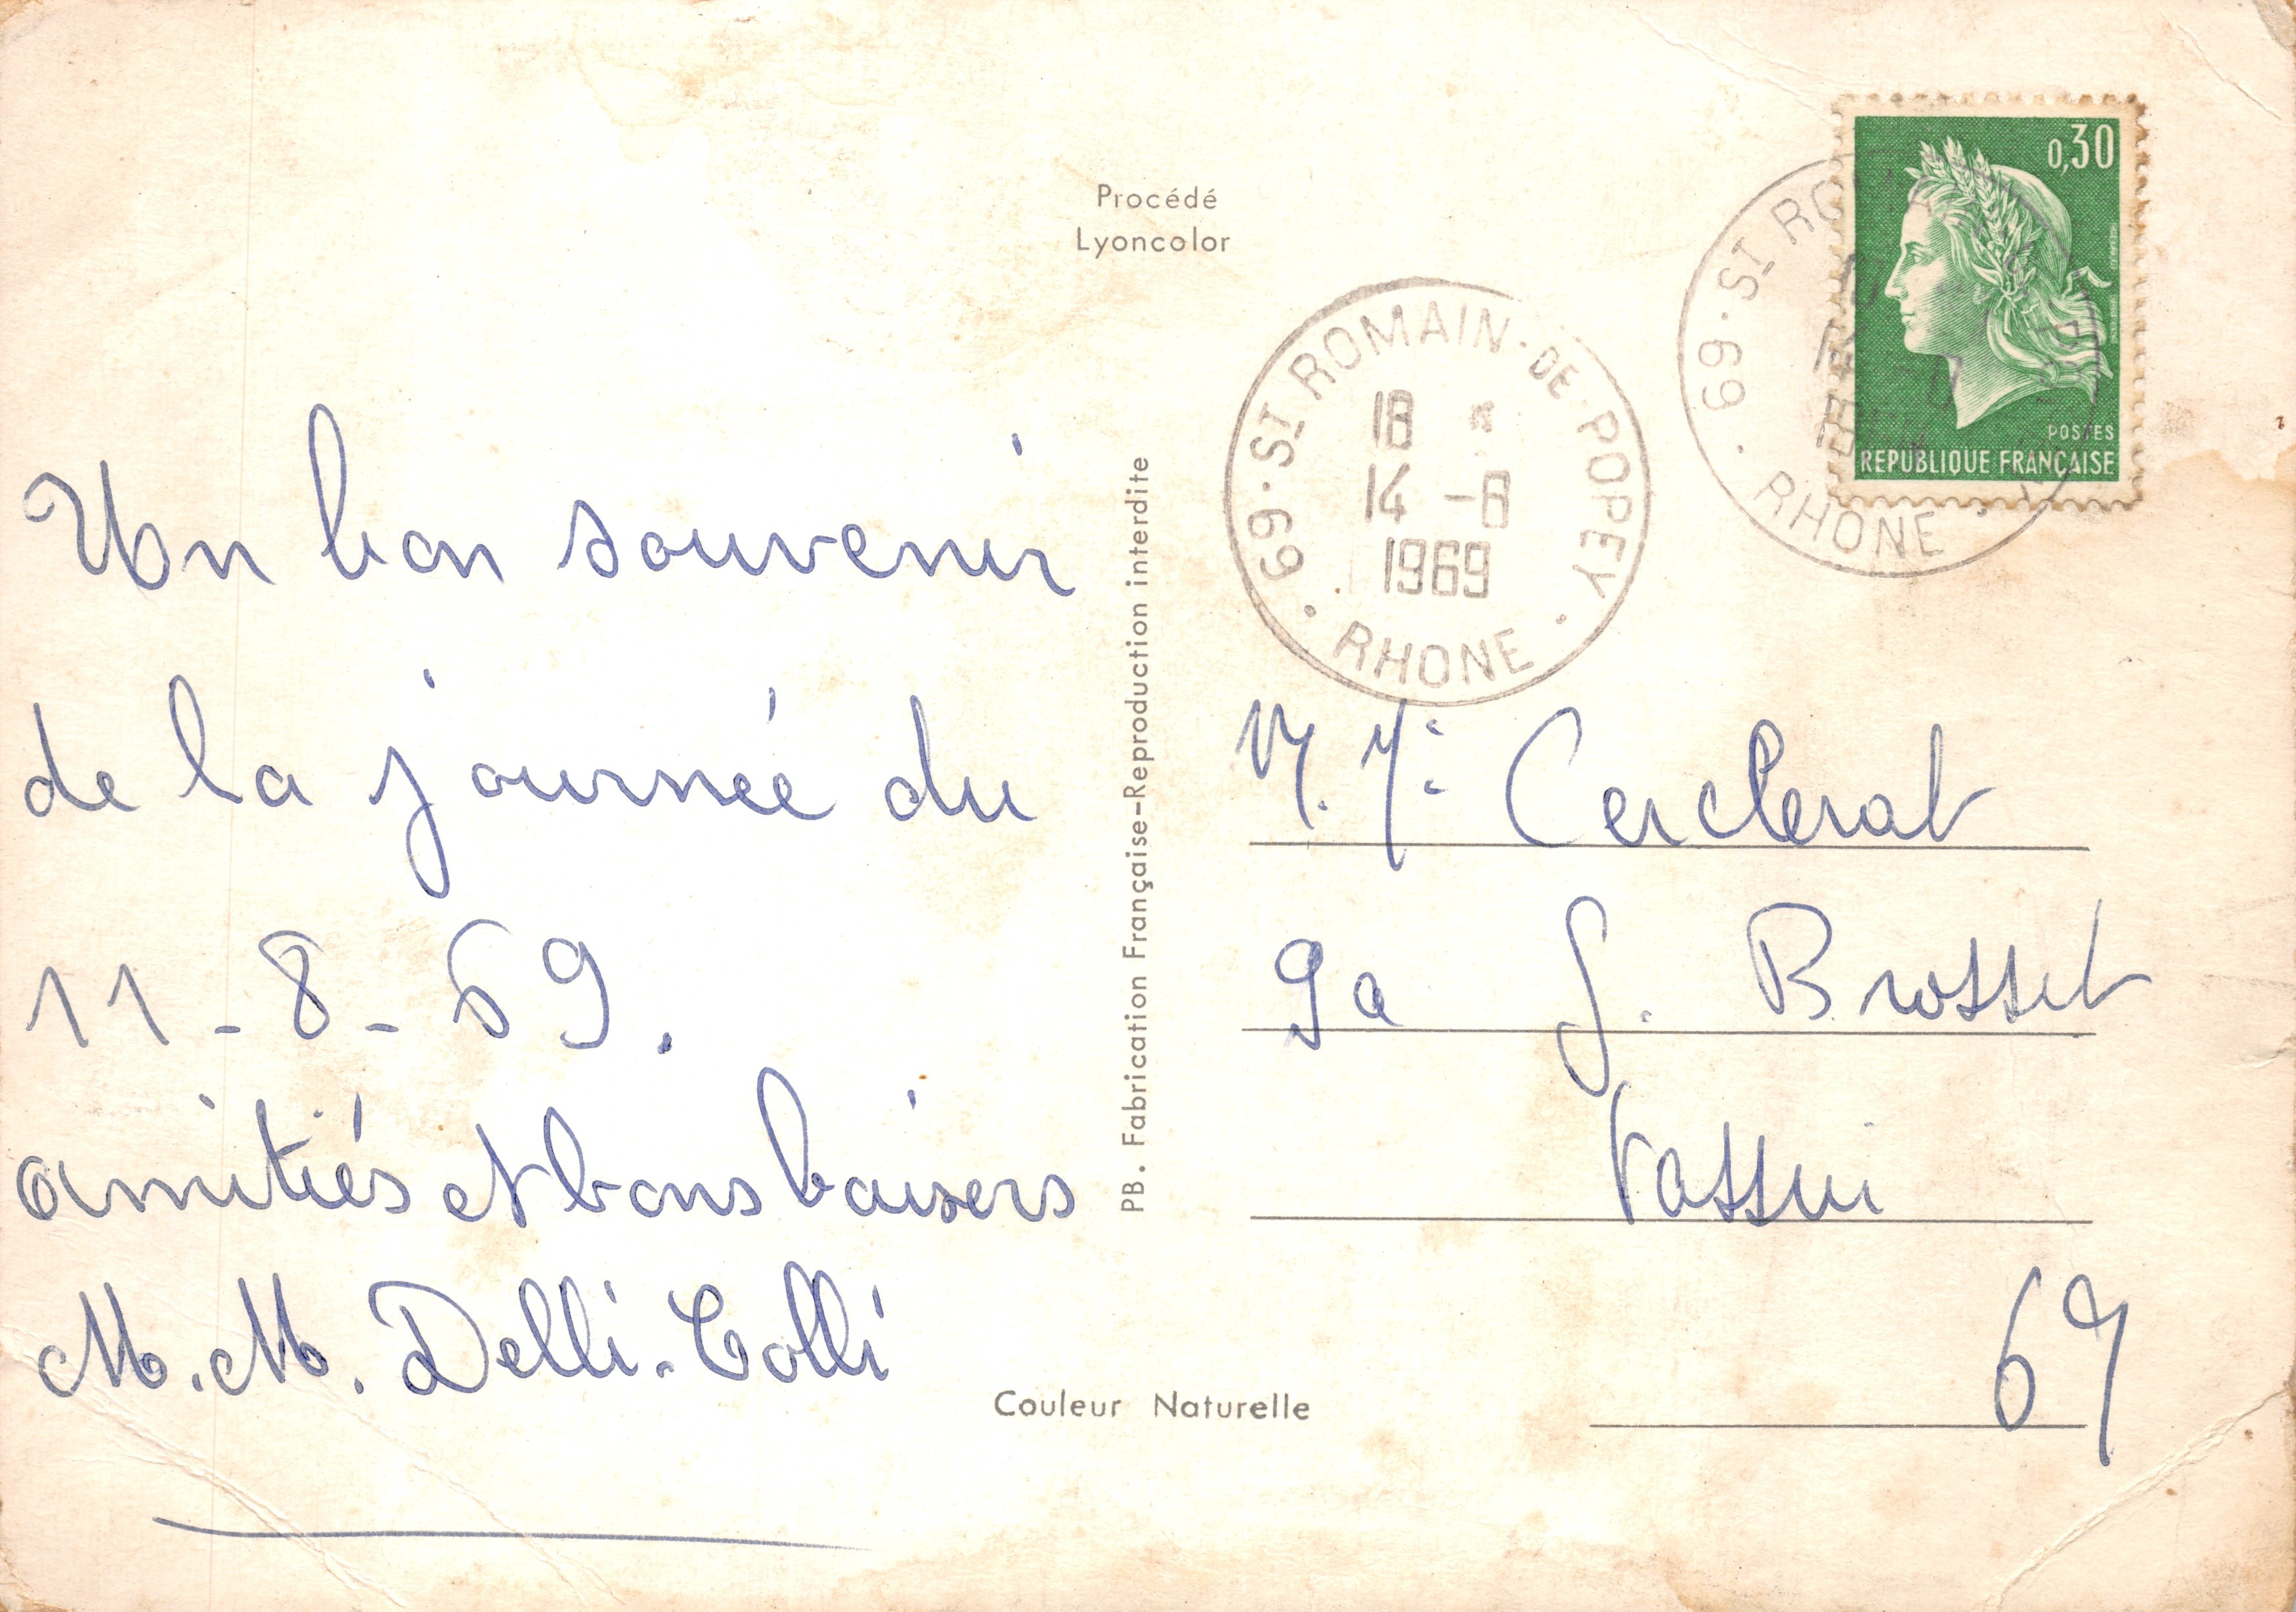 Procédé
Lyoncolor
0,30
POSTES
REPUBLIQUE FRANÇAISE
69 · ST ROMAIN · DE · POPEY · RHONE ·
18 *
14 -8
1969
69 · ST RO
· RHONE ·
Un bon souvenir
de la journée du
11-8-69.
amitiés et bons baisers
M.M. Delli-Colli
PB. Fabrication Française-Reproduction interdite
M. Cerclerat
9a G. Brosset
Tassin
69
Couleur Naturelle